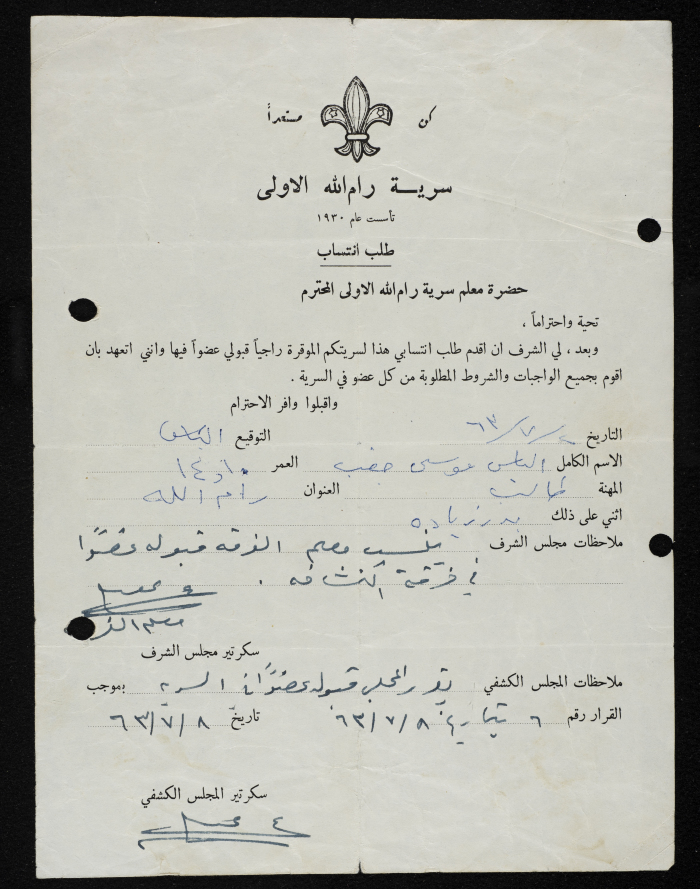 كن مستعداً
سرية رام الله الاولى
تأسست عام ١٩٣٠
طلب انتساب
حضرة معلم سرية رام الله الاولى المحترم
تحية واحتراماً ،
وبعد ، لي الشرف ان اقدم طلب انتسابي هذا لسريتكم الموقرة راجياً قبولي عضواً فيها وانني اتعهد بان
اقوم بجميع الواجبات والشروط المطلوبة من كل عضو في السرية .
واقبلوا وافر الاحترام
التاريخ ٦٣/٧/ التوقيع الياس
الاسم الكامل الياس موسى العمر
المهنة طالب العنوان رام الله
اثني على ذلك بدر زياده
ملاحظات مجلس الشرف ينسب معلم الفرقه قبوله عضوًا
في فرقة الكشافه .
معلم
سكرتير مجلس الشرف
ملاحظات المجلس الكشفي يقرر المجلس قبوله عضوًا في السريه بموجب
القرار رقم ٦ بتاريخ ٦٣/٧/٨ تاريخ ٦٣/٧/٨
سكرتير المجلس الكشفي